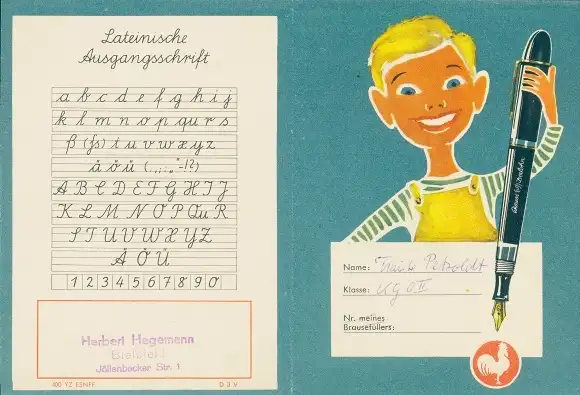 Lateinische
Ausgangsschrift
a b c d e f g h i j
k l m n o p qu r s
ß (ſs) t u v w x y z
ä ö ü (.,;:„“-!?)
A B C D E F G H I J
K L M N O P Qu R
S T U V W X Y Z
Ä Ö Ü
1 2 3 4 5 6 7 8 9 0
Herbert Hegemann
Bielefeld
Jöllenbecker Str. 1
400 YZ ESNFF D 3 V
Name: Petzoldt
Klasse:
Nr. meines
Brausefüllers: